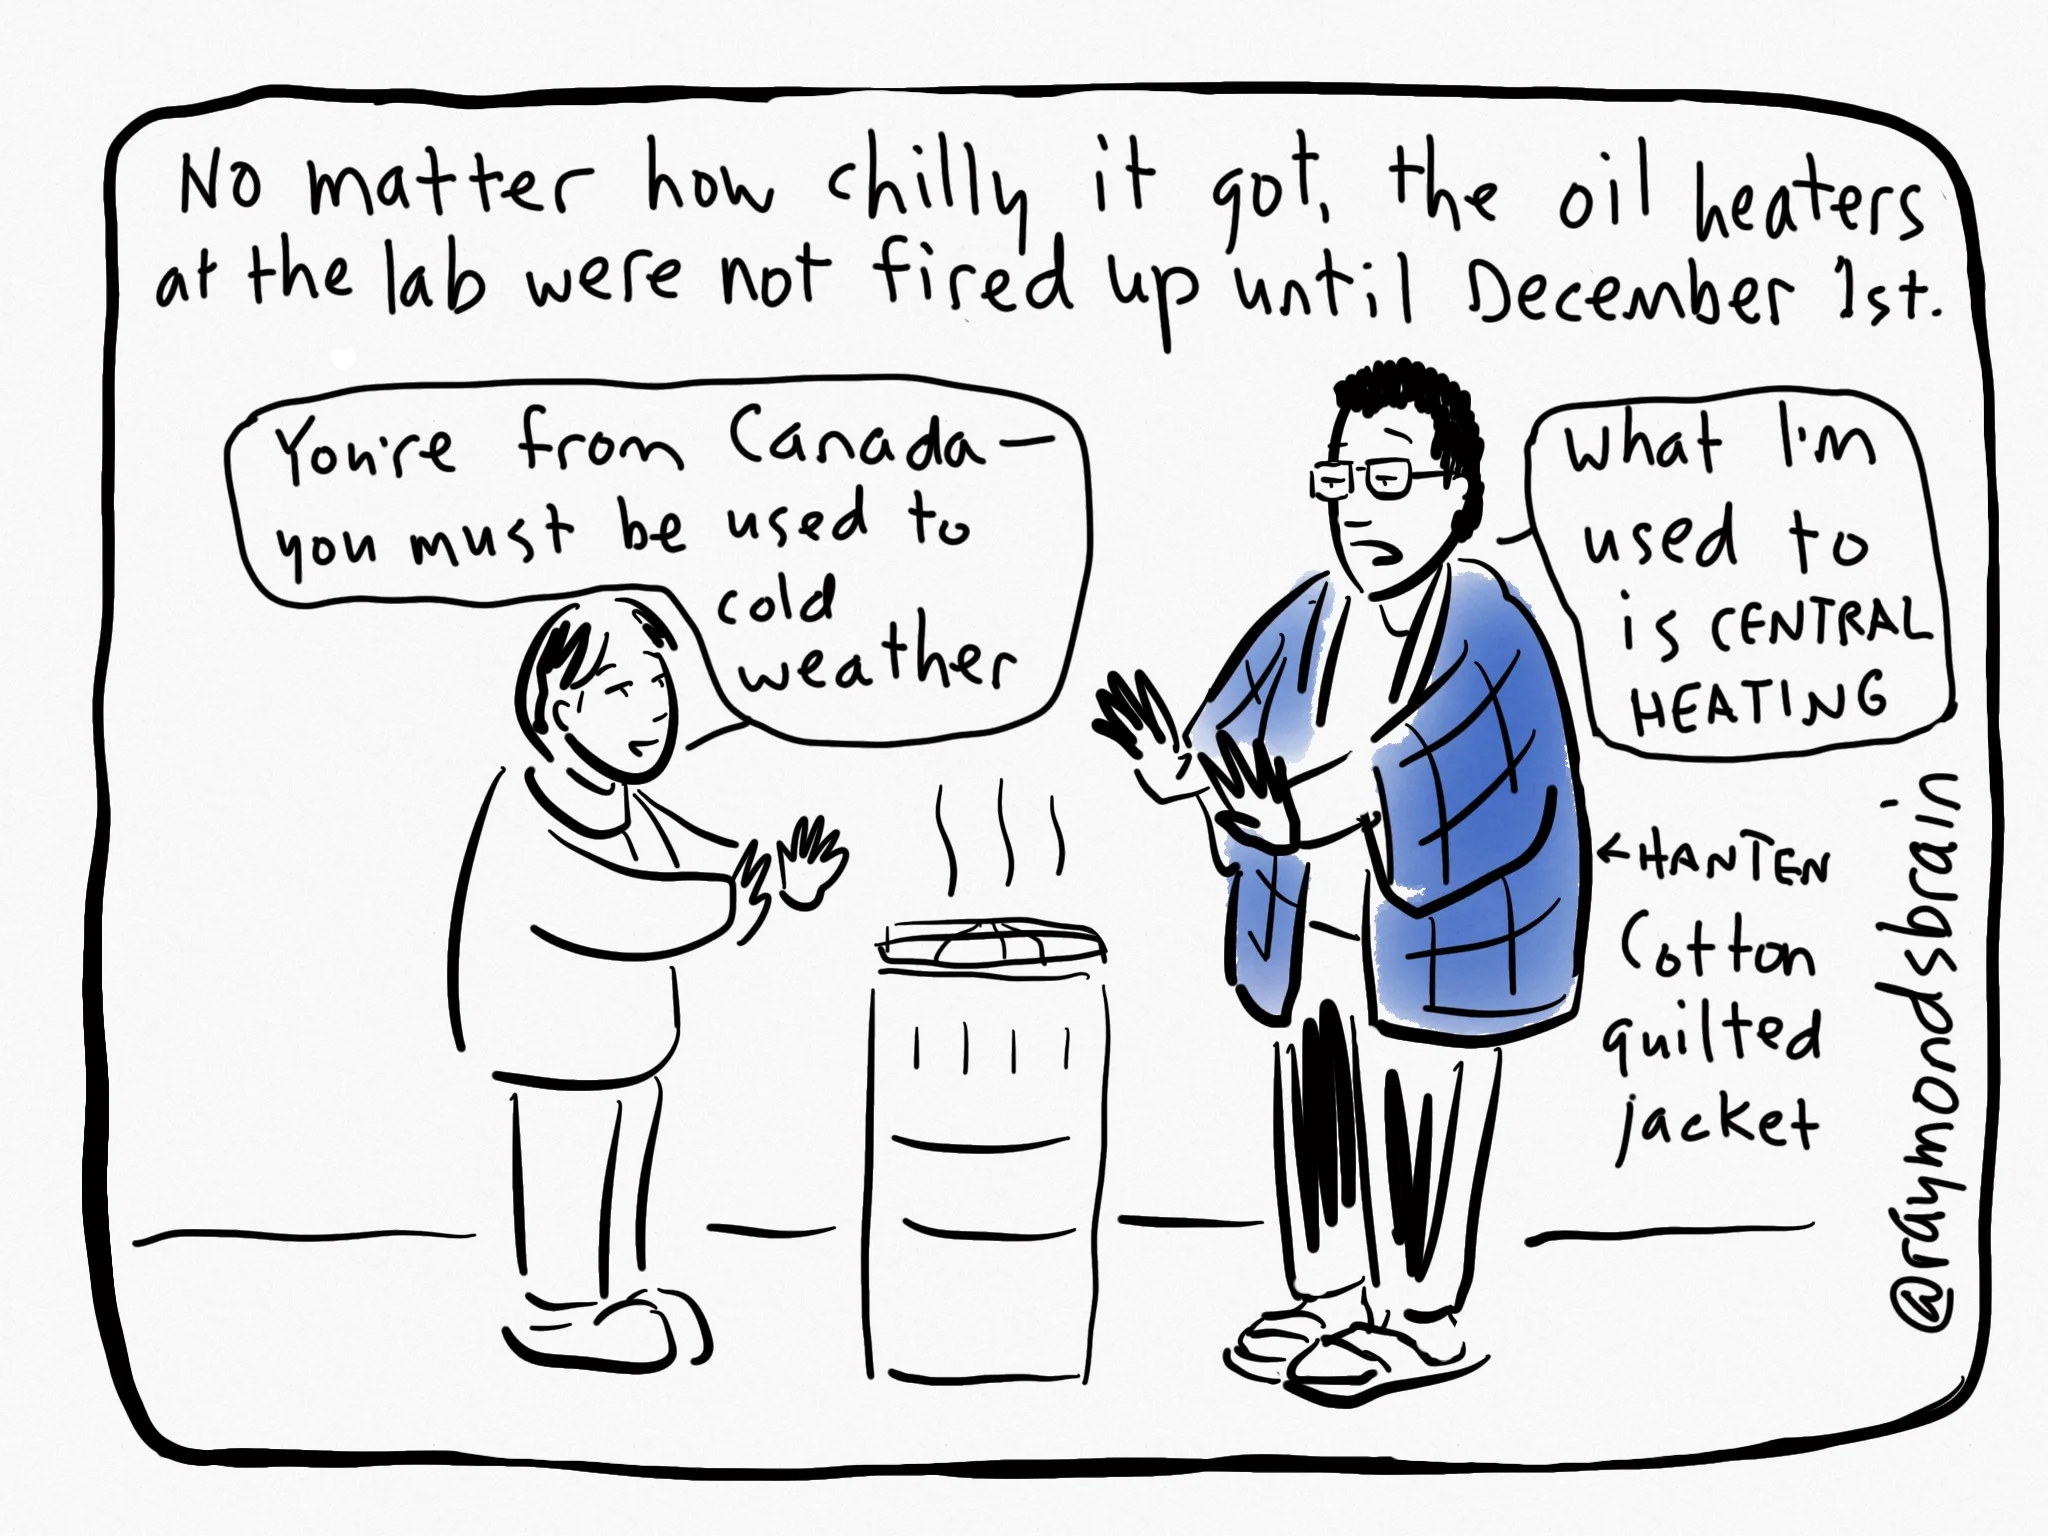 No matter how chilly it got, the oil heaters
at the lab were not fired up until December 1st.
You're from Canada—
you must be used to
cold
weather
What I'm
used to
is CENTRAL
HEATING
←HANTEN
Cotton
quilted
jacket
@raymondsbrain